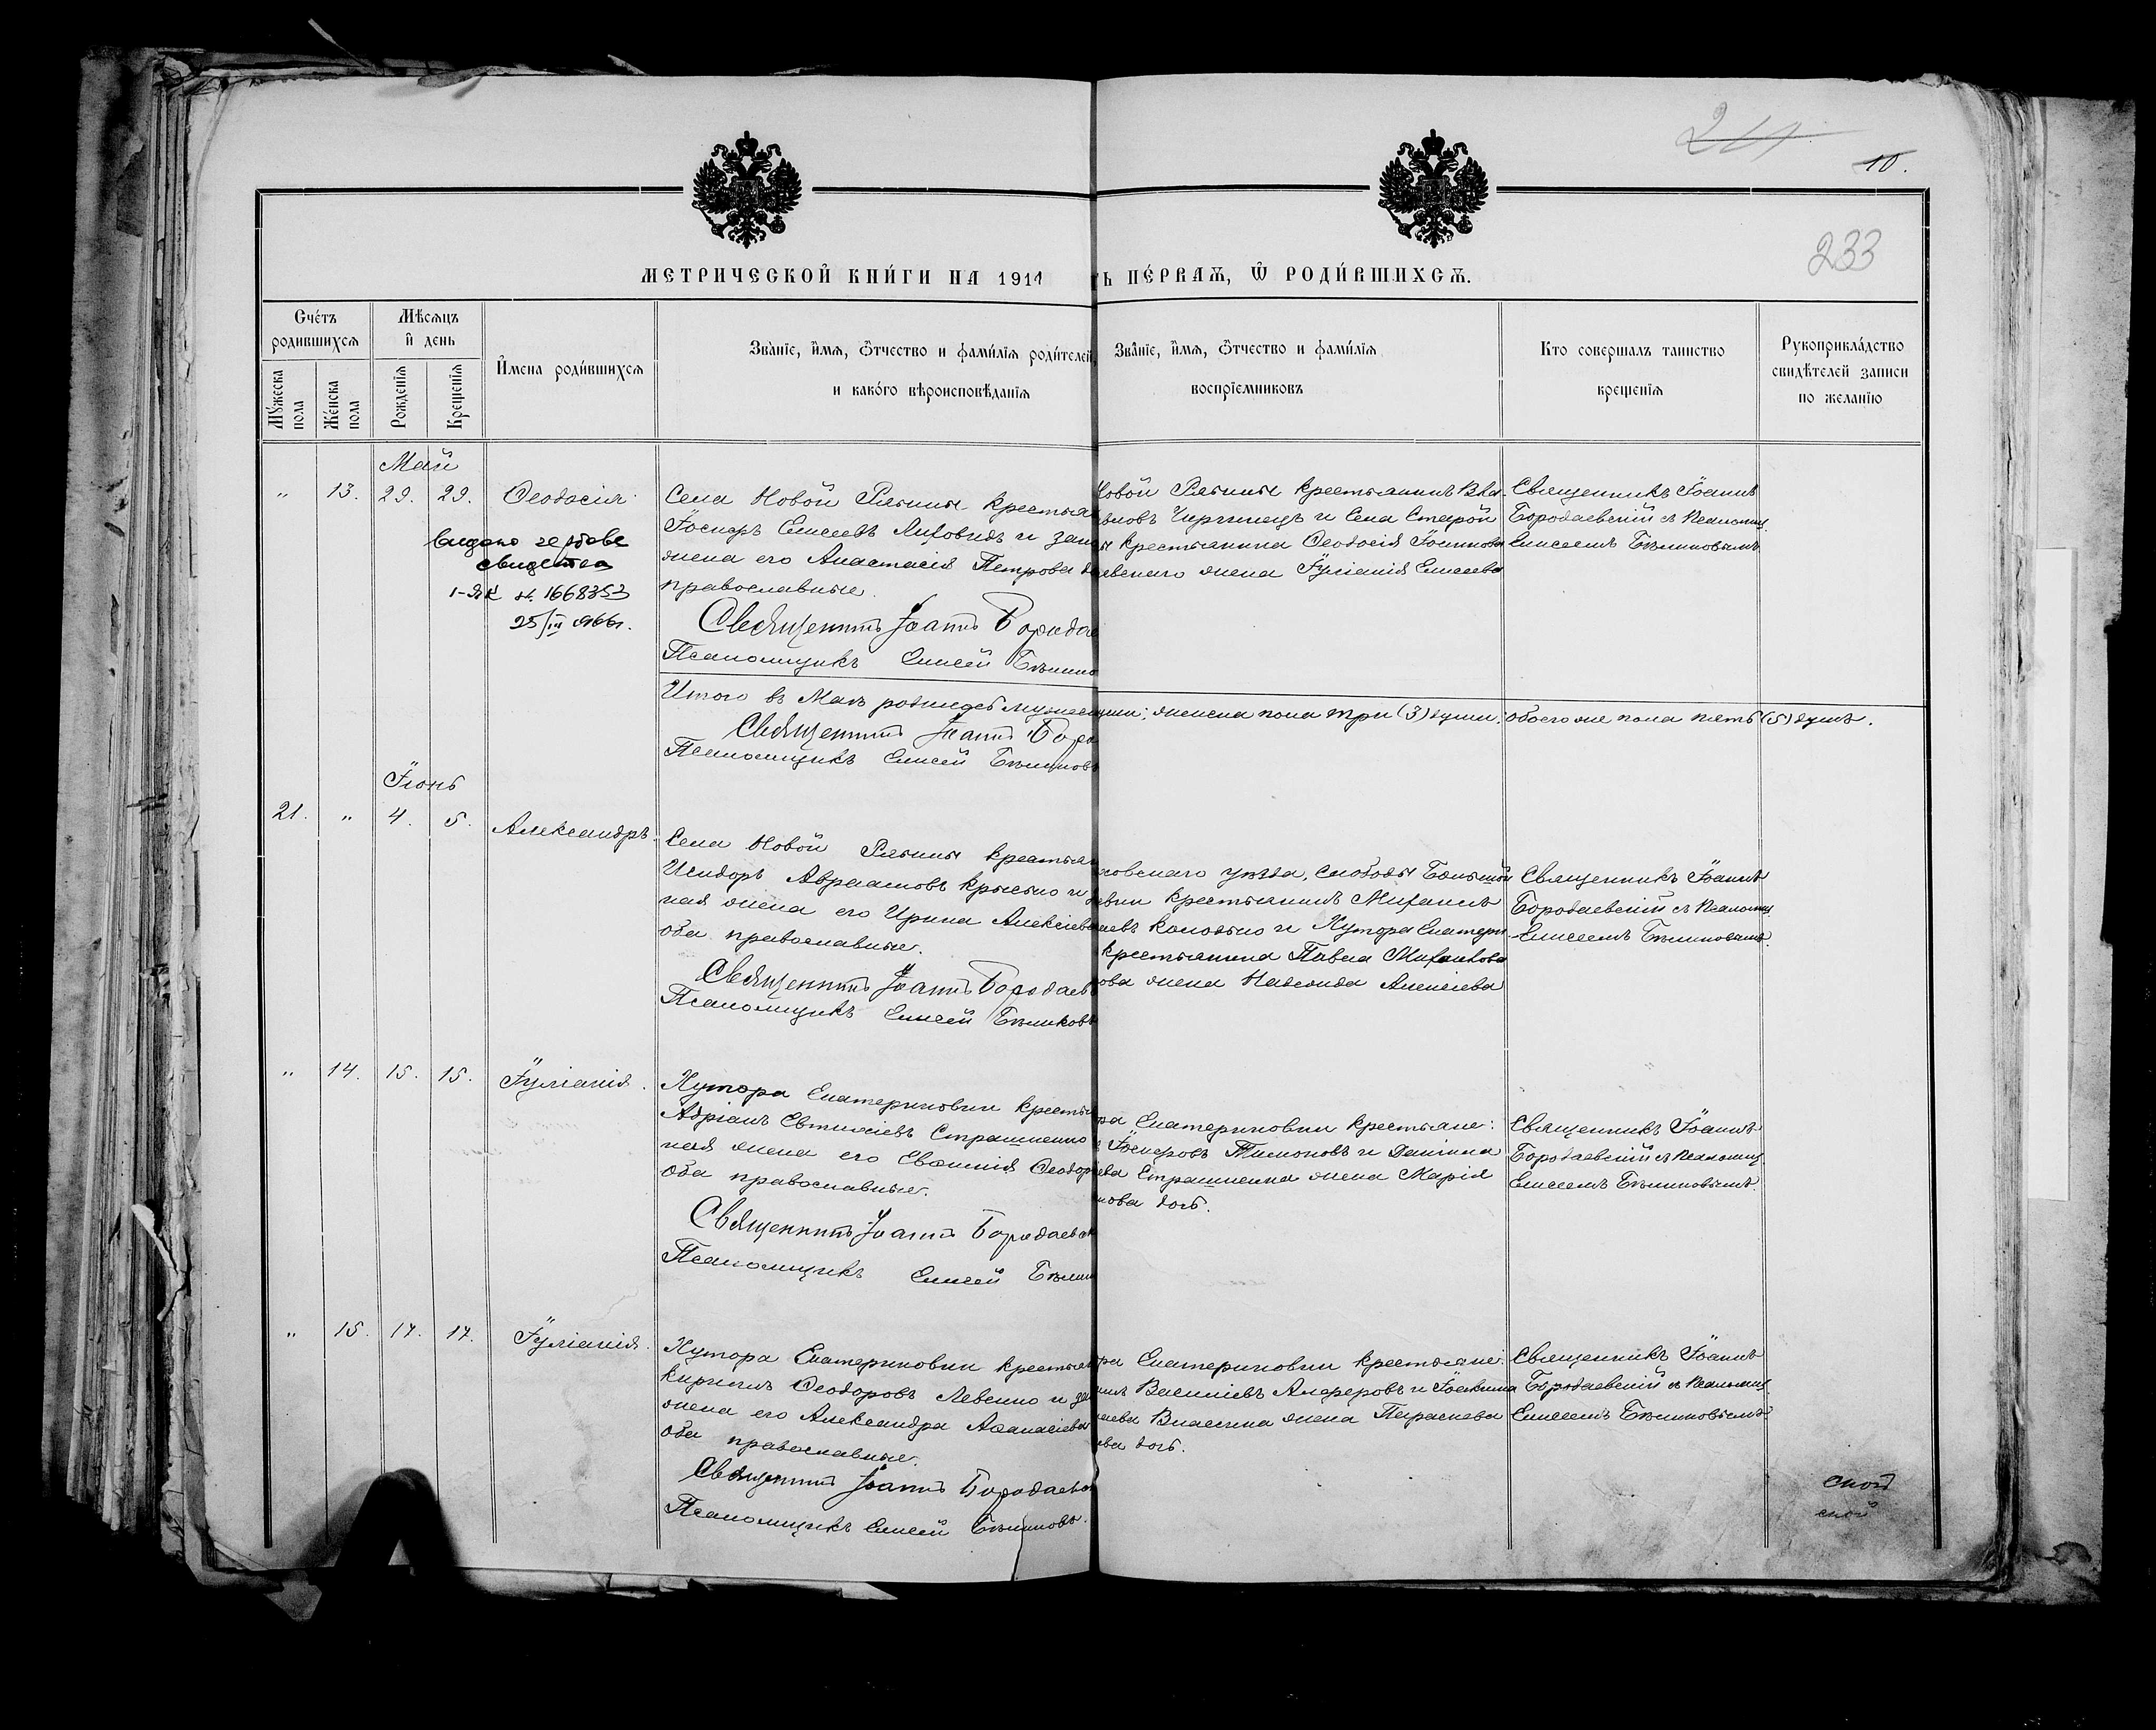 211
10.
233
МЕТРИЧЕСКОЙ КНИ́ГИ НА 1911
ь ПЕ́РВАѦ, Ѽ РОДИ́ВШИХСѦ.
Сче́тъ родившихсѧ
Мѣсѧцъ и день
Мꙋ́жеска пола
Же́нска пола
Рожденїѧ
Крещенїѧ
И́мена роди́вшихсѧ
Зва́нїе, и́мѧ, ѻ҆́тчество и фами́лїѧ роди́телей,
и како́го вѣроисповѣ́данїѧ
Зва́нїе, и́мѧ, ѻ҆́тчество и фами́лїѧ
воспрїемниковъ
Кто совершалъ таинство
крещенїѧ
Рукоприкла́дство
свидѣ́телей записи
по желанїю
Май
" 13. 29. 29. Ѳеодосія
Села Новой Рябины крестья
Іосифъ Елисеевъ Лиховидъ и зак
жена его Анастасія Петрова
православные.
Священникъ Іоаннъ Бородае
Псаломщикъ Елисей Бѣлико
Новой Рябины крестьянинъ
и Села Старой
крестьянина Ѳеодосія
жена Іуліанія Елисеева
Священникъ Іоаннъ
Бородаевскій съ Псаломщ.
Елисеемъ Бѣликовымъ.
1-ЯК № 1668353
25/III 1966г.
Итого въ Маѣ родилось мужес
души; женска пола три (3) души; обоего же пола пять (5) душъ.
Священникъ Іоаннъ Боро
Псаломщикъ Елисей Бѣликовъ
Іюнь
21. " 4. 5. Александръ.
Села Новой Рябины крестьян
Исидоръ Авраамовъ и
ная жена его Ирина Алексіева
оба православные.
Священникъ Іоаннъ Бородаев
Псаломщикъ Елисей Бѣликовъ
ховскаго уѣзда, слободы Большой
крестьянинъ Михаилъ
и Хутора Екатери-
крестьянина Павла Михаилова
ова жена Алексіева
Священникъ Іоаннъ
Бородаевскій съ Псаломщ.
Елисеемъ Бѣликовымъ.
" 14. 15. 15. Іуліанія.
Хутора Екатериновки крестья
Адріанъ Евтихіевъ Страшненко
ная жена его Евфимія Ѳеодор
оба православные.
Священникъ Іоаннъ Бородаевск
Псаломщикъ Елисей Бѣлик
ра Екатериновки крестьяне:
Тимоновъ и Даніила
ева Страшненка жена Марія
нова дочь.
Священникъ Іоаннъ
Бородаевскій съ Псаломщ
Елисеемъ Бѣликовымъ.
" 15. 17. 17. Іуліанія.
Хутора Екатериновки крестья
Кириллъ Ѳеодоровъ Левенко и за
жена его Александра Аѳанасіева
оба православные.
Священникъ Іоаннъ Бородаевск
Псаломщикъ Елисей Бѣликовъ.
ра Екатериновки крестьяне:
Василіевъ Алферовъ и
Власенка жена Параскева
ева дочь.
Священникъ Іоаннъ
Бородаевскій съ Псаломщ
Елисеемъ Бѣликовымъ
ской
ской